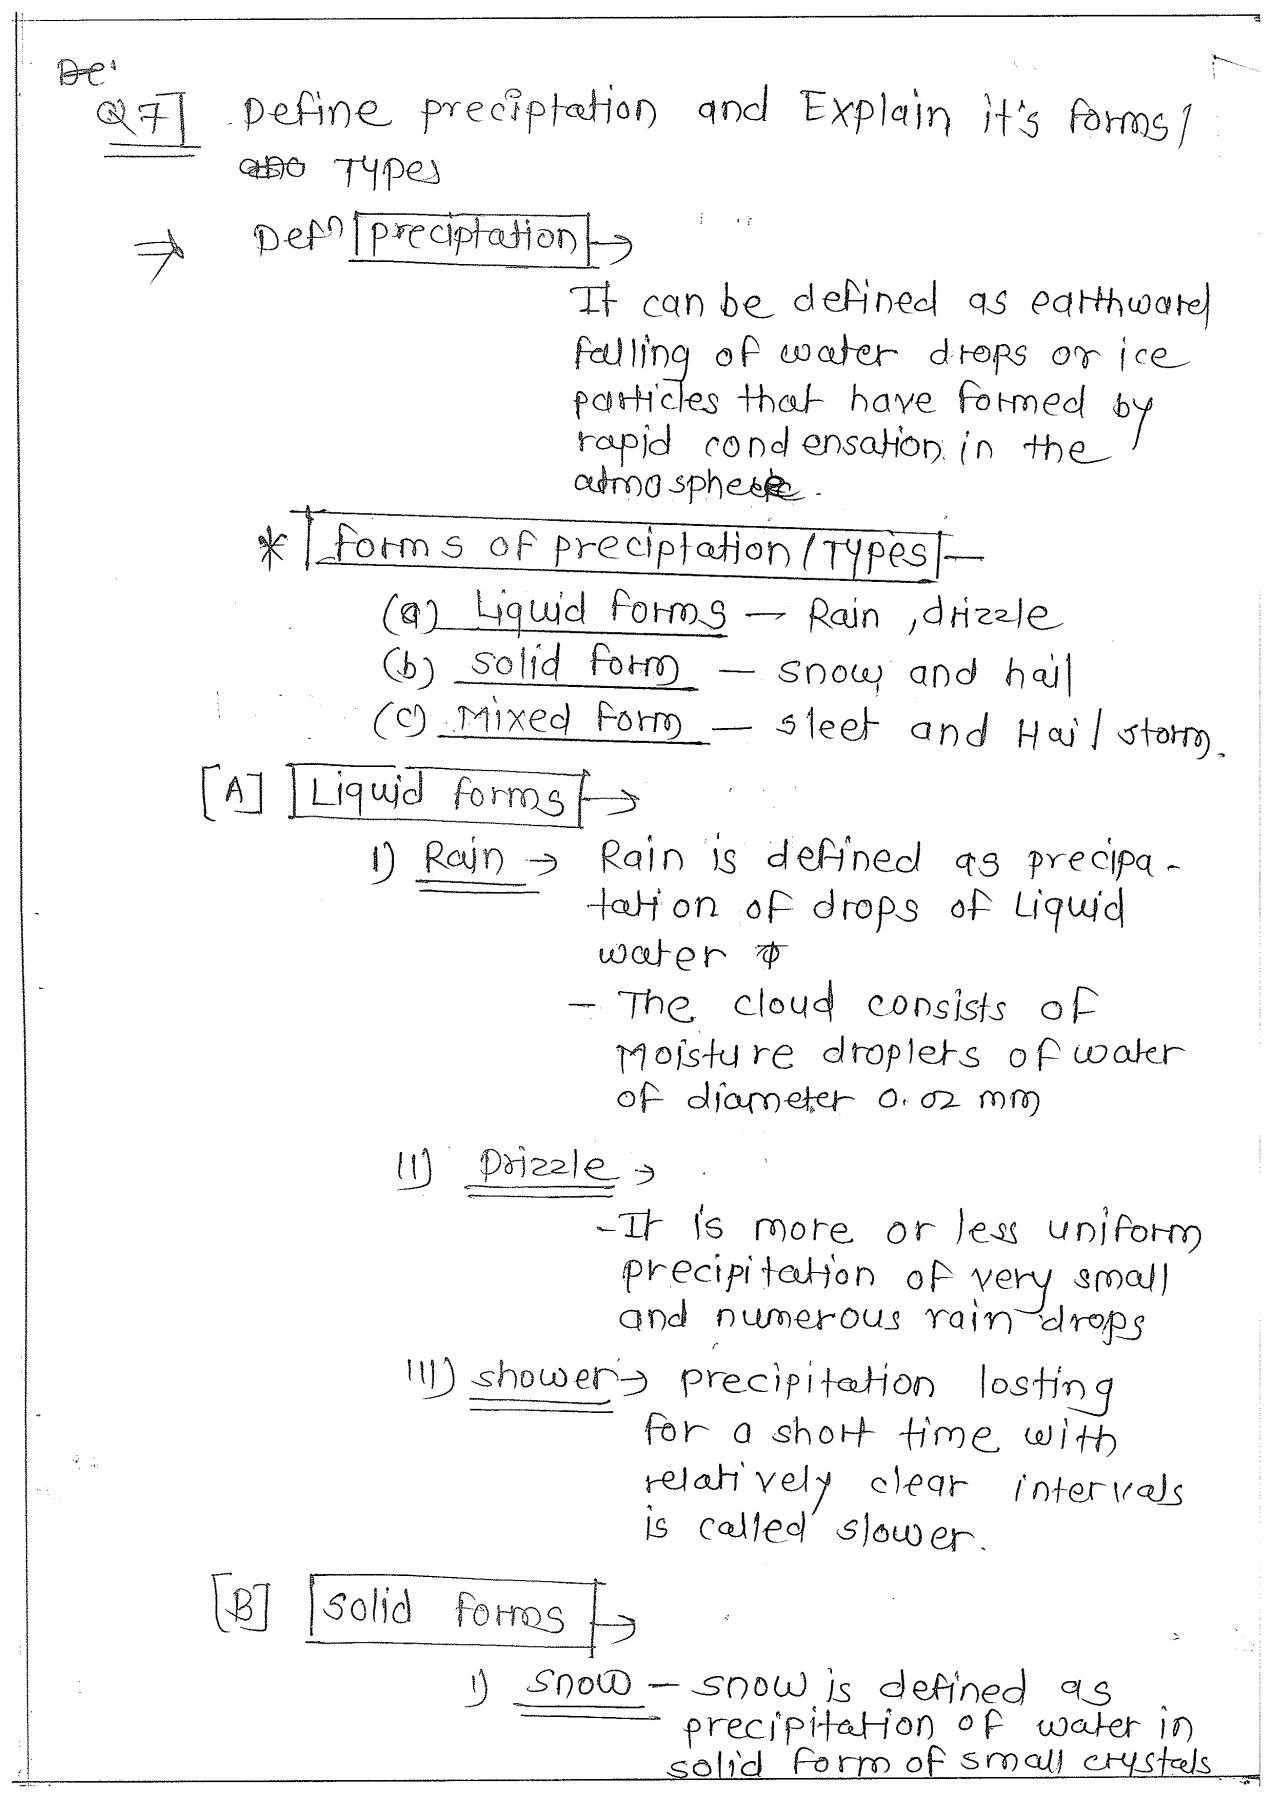 De'
Q7] Define preciptation and Explain it's forms/
Types
⇒ Defn preciptation →
It can be defined as earthward
falling of water drops or ice
particles that have formed by
rapid condensation in the
atmosphere.
* forms of preciptation / Types —
(a) Liquid forms — Rain, drizzle
(b) solid form — snow and hail
(c) Mixed form — sleet and Hail storm.
[A] Liquid forms →
I) Rain → Rain is defined as precipa-
tation of drops of Liquid
water
- The cloud consists of
Moisture droplets of water
of diameter 0.02 mm
II) Drizzle →
- It is more or less uniform
precipitation of very small
and numerous rain drops
III) shower → precipitation losting
for a short time with
relatively clear intervals
is called slower.
[B] Solid forms →
I) Snow — snow is defined as
precipitation of water in
solid form of small crystals